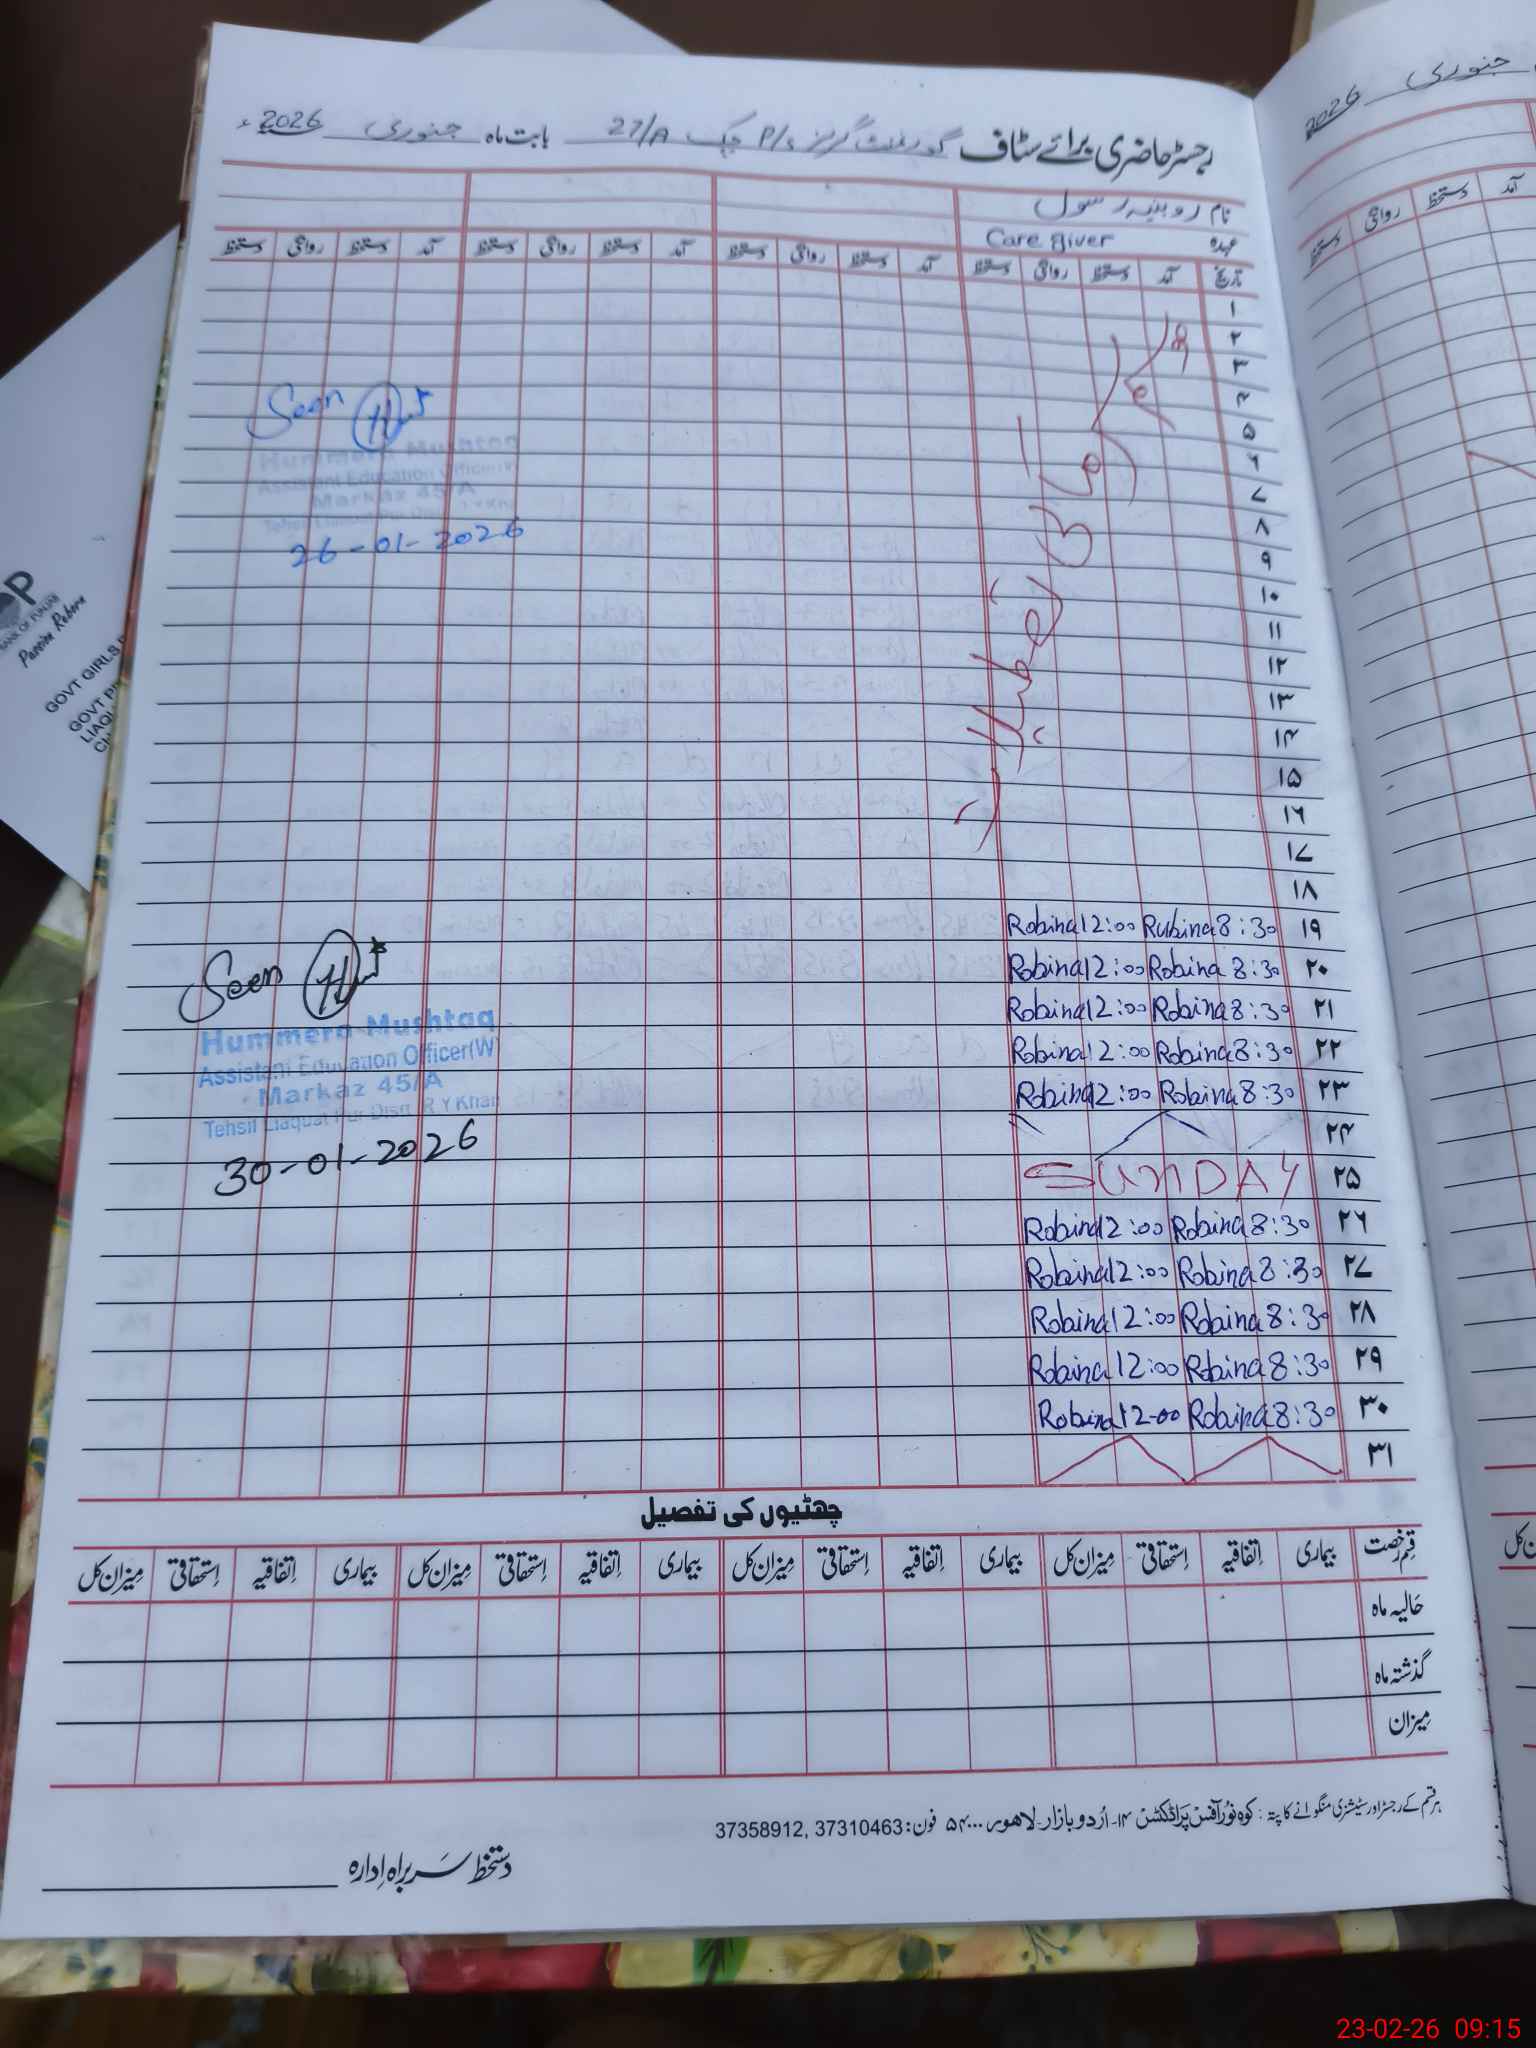 رجسٹر حاضری برائے سٹاف گورنمنٹ گرلز P/s چک 27/A بابت ماہ جنوری 2026ء
نام روبینہ رسول
عہدہ Care giver
تاریخ آمد دستخط روانگی دستخط آمد دستخط روانگی دستخط آمد دستخط روانگی دستخط آمد دستخط روانگی دستخط
۱
۲
۳
۴
۵
۶
۷
۸
۹
۱۰
۱۱
۱۲
۱۳
۱۴
۱۵
۱۶
۱۷
۱۸
۱۹ 8:30 Rubina 12:00 Robina
۲۰ 8:30 Robina 12:00 Robina
۲۱ 8:30 Robina 12:00 Robina
۲۲ 8:30 Robina 12:00 Robina
۲۳ 8:30 Robina 12:00 Robina
۲۴
۲۵ SUNDAY
۲۶ 8:30 Robina 12:00 Robina
۲۷ 8:30 Robina 12:00 Robina
۲۸ 8:30 Robina 12:00 Robina
۲۹ 8:30 Robina 12:00 Robina
۳۰ 8:30 Robina 12-00 Robina
۳۱
Seen
Hummera Mushtaq
Assistant Education Officer(W)
Markaz 45/A
26-01-2026
Seen
Hummera Mushtaq
Assistant Education Officer(W)
Markaz 45/A
Tehsil Liaquat Pur Distt. R Y Khan
30-01-2026
چھٹیوں کی تفصیل
قسم رخصت بیماری اتفاقیہ استحقاقی میزان کل بیماری اتفاقیہ استحقاقی میزان کل بیماری اتفاقیہ استحقاقی میزان کل بیماری اتفاقیہ استحقاقی میزان کل
حالیہ ماہ
گذشتہ ماہ
میزان
ہر قسم کے رجسٹر اور سٹیشنری منگوانے کا پتہ: کوہ نور آفس پراڈکٹس ۱۴۔ اُردو بازار۔ لاہور ۵۴۰۰۰ فون: 37310463, 37358912
دستخط سربراہ ادارہ
جنوری 2026
آمد دستخط روانگی دستخط
BANK OF PUNJAB
GOVT GIRLS
GOVT
23-02-26 09:15